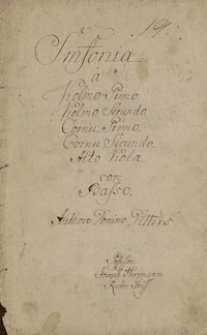 19.
Sinfonia
à
Violino Primo.
Violino Secundo
Cornu Primo.
Cornu Secundo.
Alto Viola
con
Basso.
Authore Domino
Possessor